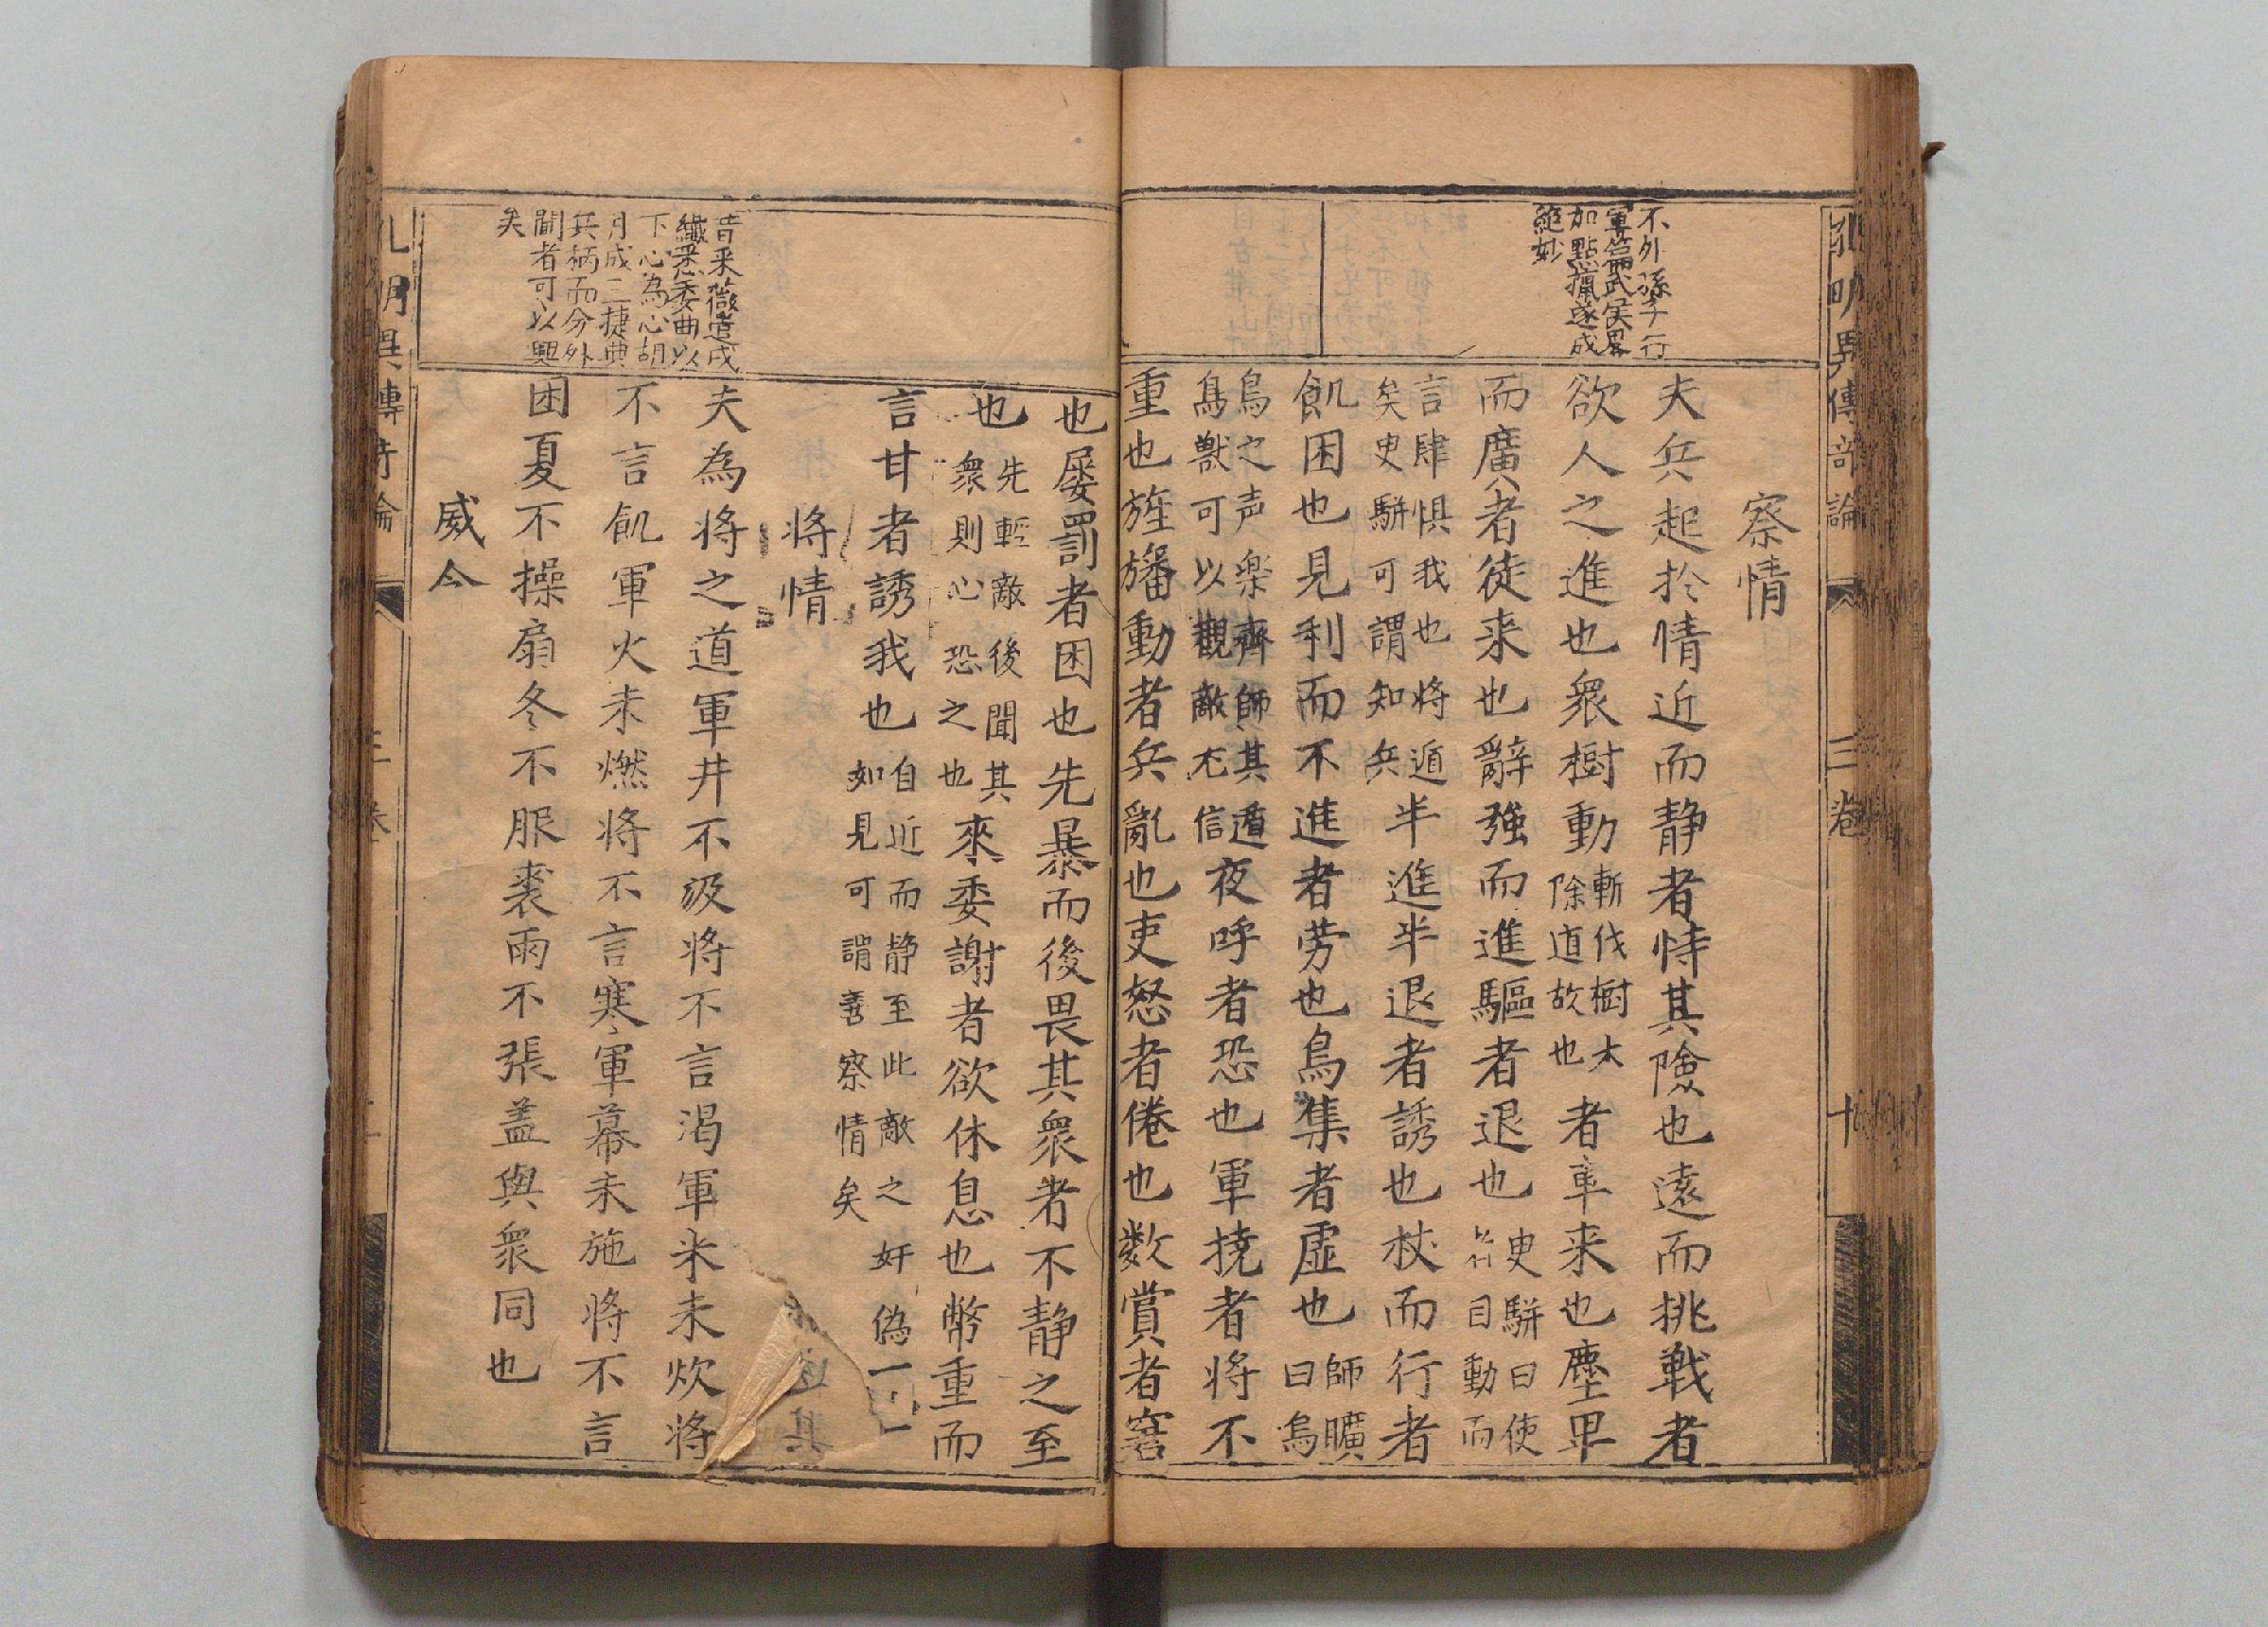 不外孫子行
軍篇武侯畧
加點攛遂成
絶妙
察情
夫兵起於情近而静者恃其險也遠而挑戦者
欲人之進也衆樹動
斬伐樹木
除道故也
者車来也塵卑
而廣者徒来也辭強而進驅者退也
史駢曰使
者目動而
言肆惧我也將遁
矣史駢可謂知兵
半進半退者誘也杖而行者
飢困也見利而不進者劳也鳥集者虚也
師曠
曰烏
烏之声楽齊師其遁
鳥獣可以觀敵尤信
夜呼者恐也軍撓者将不
重也旌旛動者兵亂也吏怒者倦也数賞者窘
也屡罰者困也先暴而後畏其衆者不静之至
也
先輕敵後聞其
衆則心恐之也
來委謝者欲休息也幣重而
言甘者誘我也
自近而静至此敵之奸偽一
如見可謂善察情矣
将情
夫為将之道軍井不汲将不言渇軍米未炊将
不言飢軍火未燃将不言寒軍幕未施将不言
困夏不操扇冬不服裘雨不張盖與衆同也
威令
昔采薇遣戍
纖悉委曲以
下心為心胡
月成三捷典
兵柄而分外
閫者可以興
矣
孔明異傳奇論
三卷
十